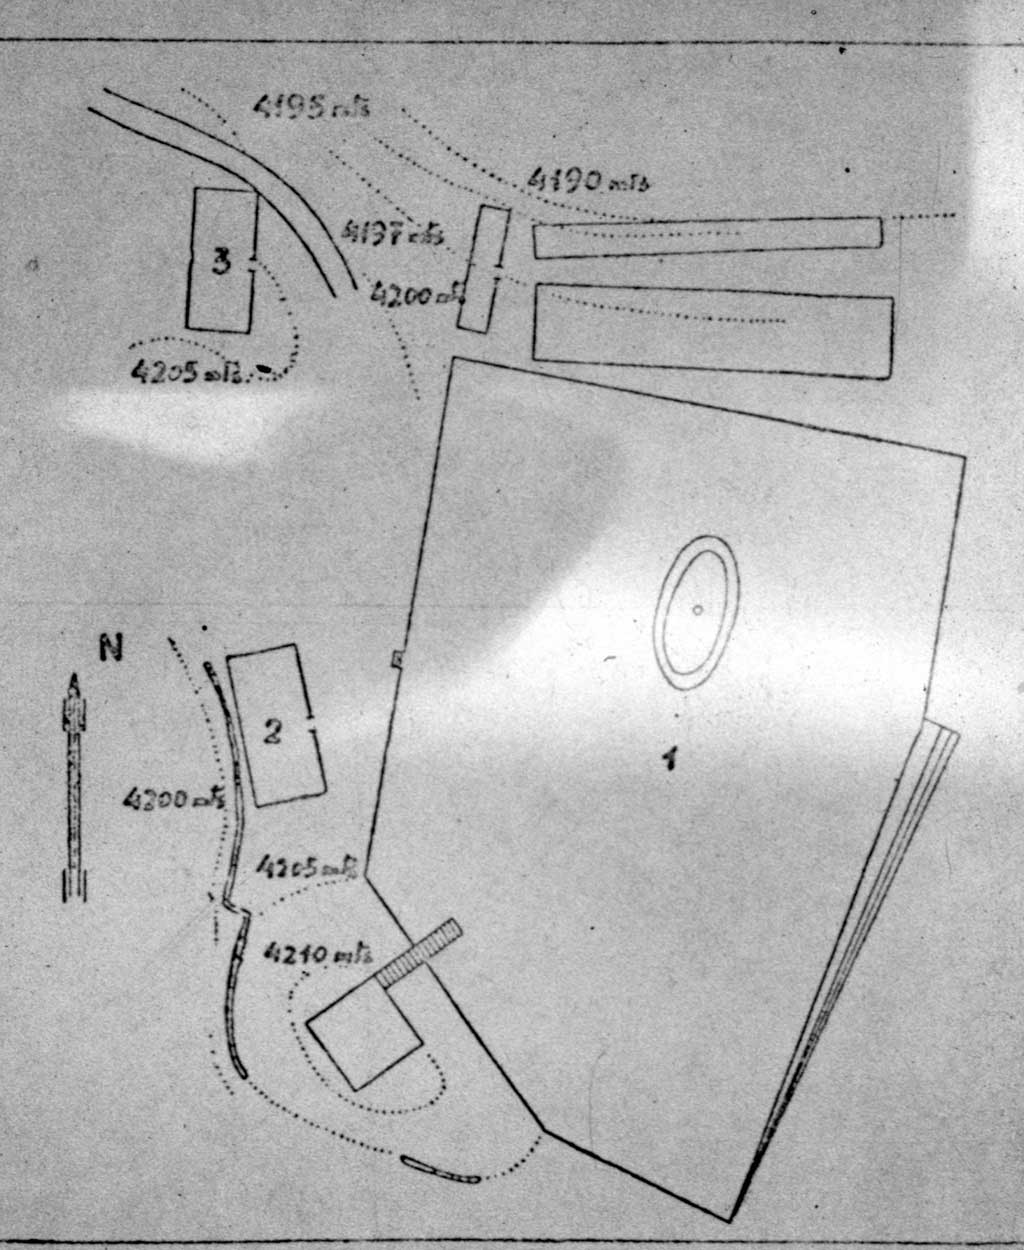 4195 mts
4190 mts
4197 mts
3
4200 mts
4205 mts
N
2
1
4200 mts
4205 mts
4210 mts